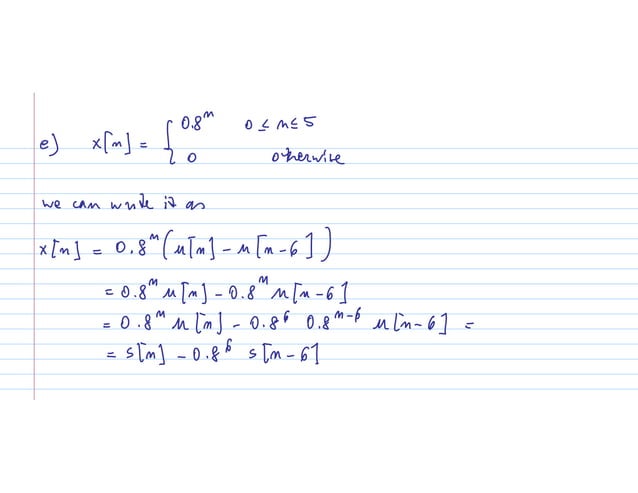 e) x[n] = { 0.8^n 0 ≤ n ≤ 5
0 otherwise
we can write it as
x[n] = 0.8^n (u[n] - u[n-6])
= 0.8^n u[n] - 0.8^n u[n-6]
= 0.8^n u[n] - 0.8^6 0.8^n-6 u[n-6] =
= s[n] - 0.8^6 s[n-6]